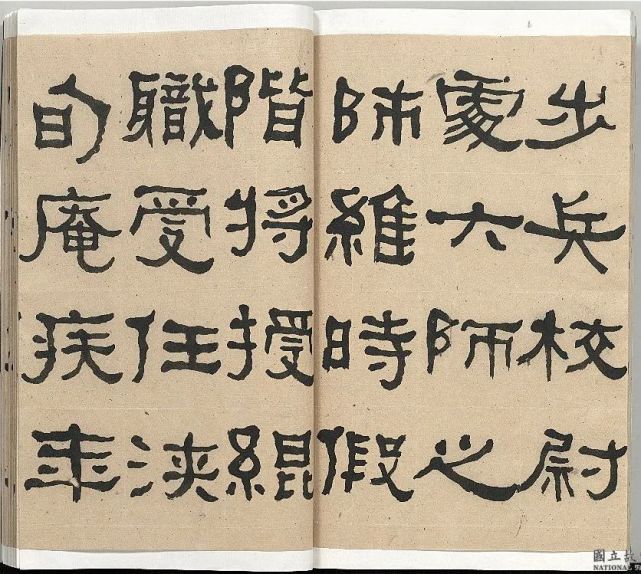 步兵校尉
處六師之
帥維時假
階將授緄
職受任浹
旬庵疾年
國立故
NATIONA